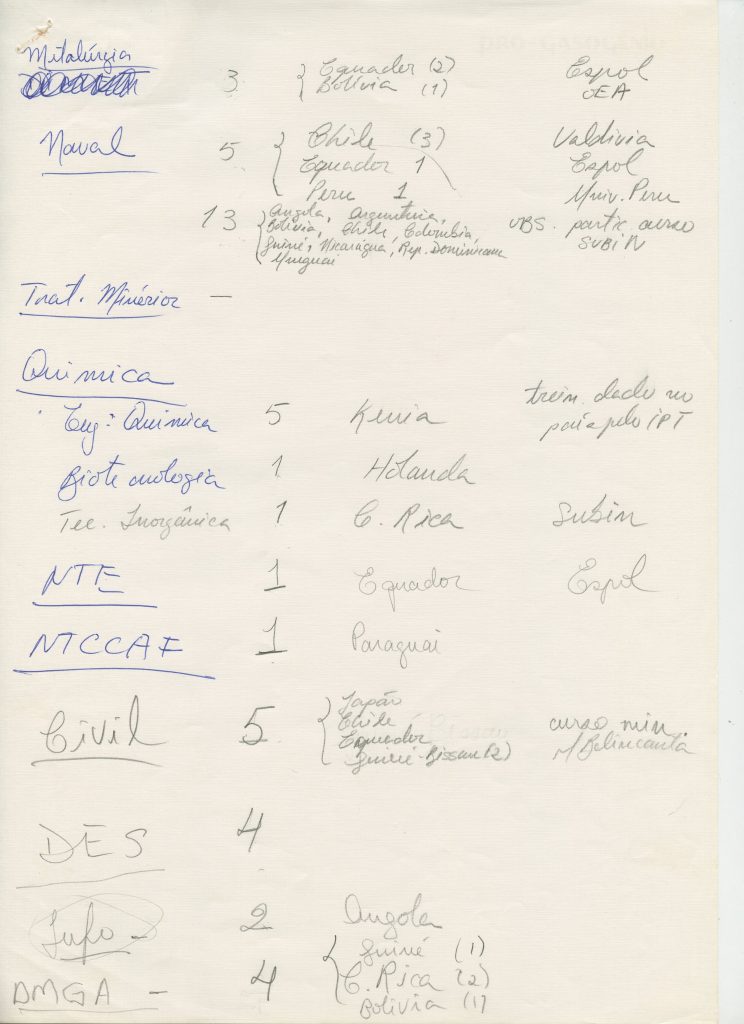 Metalúrgia 3 { Equador (2) Espol
Bolívia (1) OEA
Naval 5 { Chile (3) Valdivia
Equador 1 Espol
Peru 1 Univ. Peru
13 { Angola, Argentina, OBS. partic. curso
Bolívia, Chile, Colombia SUBIN
Guiné, Nicaragua, Rep. Dominicana
Uruguai
Trat. Minérios —
Química
Eng: Química 5 Kenia trein. dado no
país pelo IPT
Biotecnologia 1 Holanda
Tec. Inorgânica 1 C. Rica Subin
NTE 1 Equador Espol
NTCCAF 1 Paraguai
Civil 5 { Japão
Chile curso min.
Equador
Guiné-Bissau (2)
DES 4
Info - 2 Angola
DMGA - 4 { Guiné (1)
C. Rica (2)
Bolivia (1)